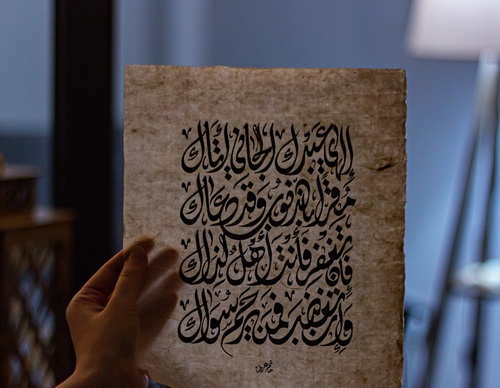 إلهي عبدك الجاني أتاك
مقرا بالذنوب وقد دعاك
فإن تغفر فأنت أهل لذاك
وإن تغضب فمن يرحم سواك